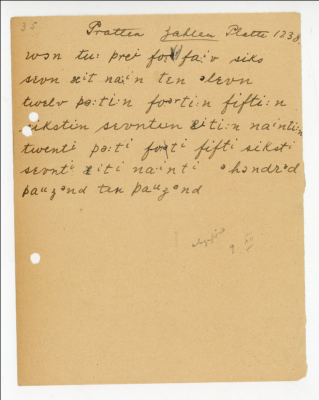 35
Pratten Zahlen Platte 1238.
wɔn tuː þrei for faiv siks
sevn æit nain ten əlevn
twelv þəːtiːn foərtiːn fiftiːn
sikstin sevntiːn æitiːn naintiːn
twenti þəːti foəti fifti siksti
sevnti æiti nainti ə həndrəd
þauzənd ten þauzənd
9